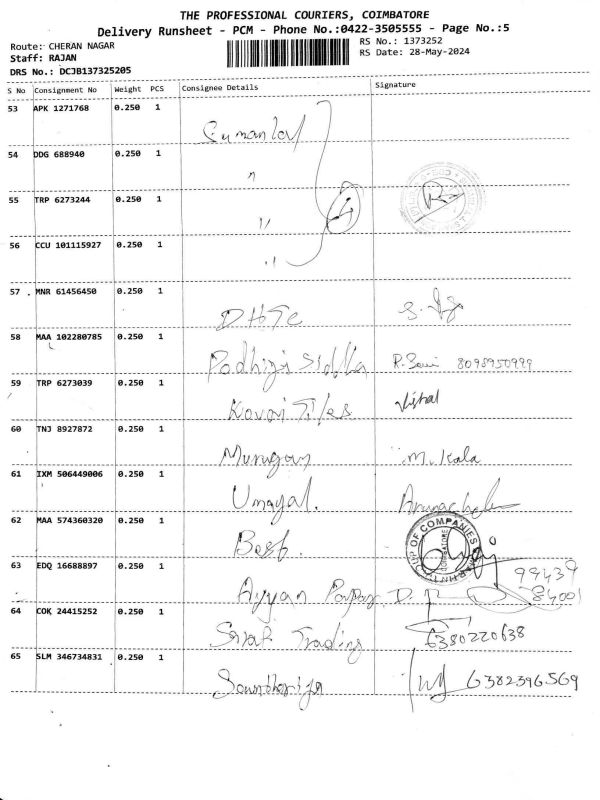 THE PROFESSIONAL COURIERS, COIMBATORE
Delivery Runsheet - PCM - Phone No.:0422-3505555 - Page No.:5
Route: CHERAN NAGAR
RS No.: 1373252
Staff: RAJAN
RS Date: 28-May-2024
DRS No.: DCJB137325205
S No Consignment No Weight PCS Consignee Details Signature
53 APK 1271768 0.250 1
54 DDG 688940 0.250 1 "
55 TRP 6273244 0.250 1 "
56 CCU 101115927 0.250 1 "
57 MNR 61456450 0.250 1 DHTC
58 MAA 102280785 0.250 1 Podhigi Siddha 8098950999
59 TRP 6273039 0.250 1 Kovai Tiles Vishal
60 TNJ 8927872 0.250 1 Murugan M. Kala
61 IXM 506449006 0.250 1 Umayal. Arunachala
62 MAA 574360320 0.250 1 Best.
UP OF COMPANIES
COIMBATORE
63 EDQ 16688897 0.250 1 Ayyan 99439
84001
64 COK 24415252 0.250 1 Trading 6380220638
65 SLM 346734831 0.250 1 Sounthariya 6382396569